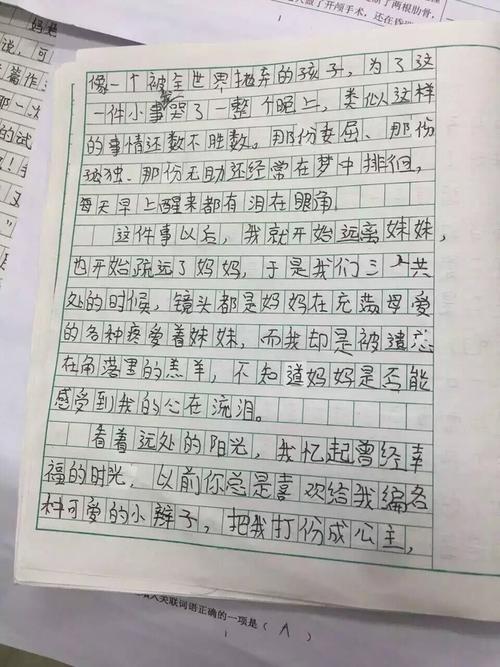 了两根肋骨,
做了开颅手术,还在昏
妈
说,可
着作
那一次
的试
像一个被全世界抛弃的孩子,为了这
一件小事哭了一整个晚上,类似这样
的事情还数不胜数。那份委屈、那份
孤独、那份无助还经常在梦中排徊,
每天早上醒来都有泪在眼角。
这件事以后,我就开始远离妹妹,
也开始疏远了妈妈,于是我们三人共
处的时候,镜头都是妈妈在充满母爱
的各种疼爱着妹妹,而我却是被遗忘
在角落里的羔羊,不知道妈妈是否能
感受到我的心在流泪。
看着远处的阳光,我忆起曾经幸
福的时光,以前你总是喜欢给我编各
种可爱的小辫子,把我打份成公主,
入关联词语正确的一项是( A )